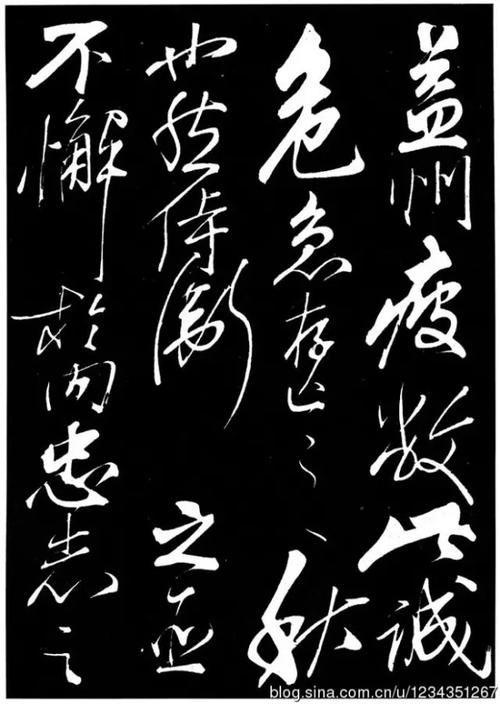 益州疲敝此誠
危急存亡之秋
也然侍衛之臣
不懈於內忠志之
blog.sina.com.cn/u/1234351267